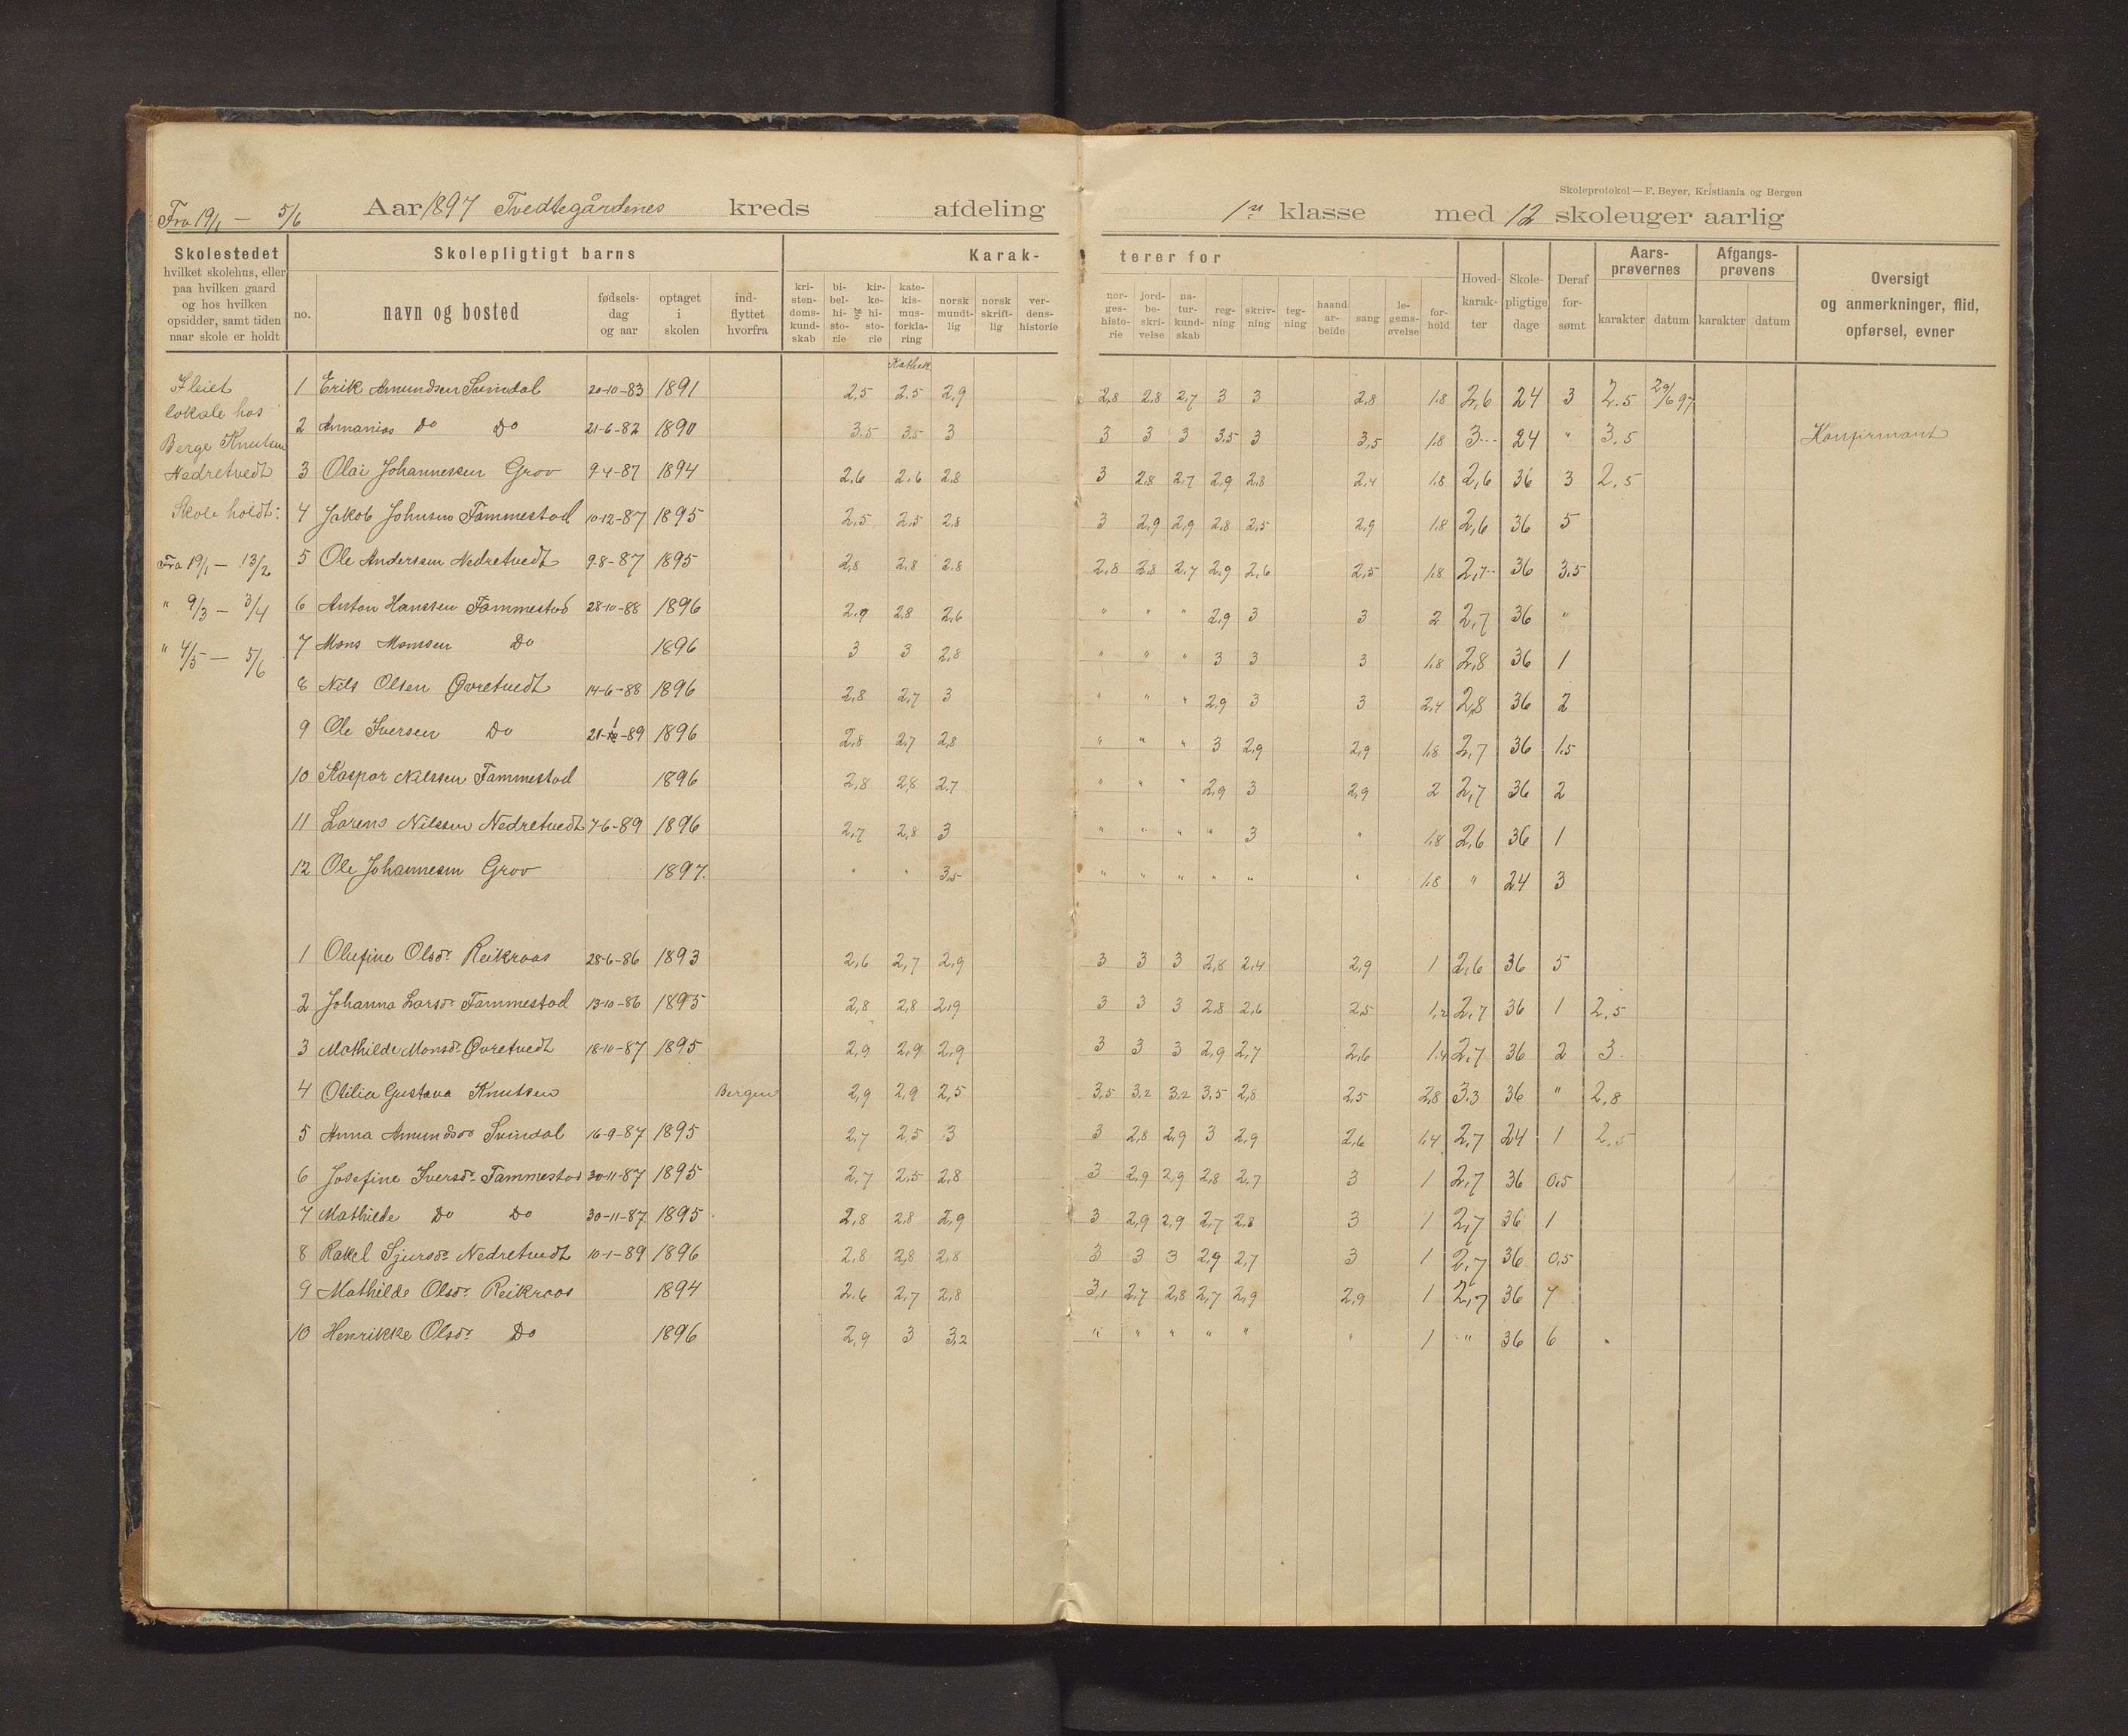 Skoleprotokol — F. Beyer, Kristiania og Bergen
Fra 19/1 — 5/6 Aar 1897 Tvedtegårdenes kreds afdeling 1ste klasse med 12 skoleuger aarlig
Skolestedet
hvilket skolehus, eller
paa hvilken gaard
og hos hvilken
opsidder, samt tiden
naar skole er holdt
Skolepligtigt barns
no.
navn og bosted
fødsels-
dag
og aar
optaget
i
skolen
ind-
flyttet
hvorfra
Karak-
terer for
kri-
sten-
doms-
kund-
skab
bi-
bel-
hi-
sto-
rie
og
kir-
ke-
hi-
sto-
rie
kate-
kis-
mus-
forkla-
ring
norsk
mundt-
lig
norsk
skrift-
lig
ver-
dens-
historie
nor-
ges-
histo-
rie
jord-
be-
skri-
velse
na-
tur-
kund-
skab
reg-
ning
skriv-
ning
teg-
ning
haand
ar-
beide
sang
le-
gems-
øvelse
for-
hold
Hoved-
karak-
ter
Skole-
pligtige
dage
Deraf
for-
sømt
Aars-
prøvernes
karakter datum
Afgangs-
prøvens
karakter datum
Oversigt
og anmerkninger, flid,
opførsel, evner
I leiet
lokale hos
Berge Knutsen
Nedretvedt
Skole holdt:
Fra 19/1 — 13/2
" 9/3 — 3/4
" 4/5 — 5/6
1 Erik Amundsen Svindal 20-10-83 1891 2,5 2,5 2,9 2,8 2,8 2,7 3 3 2,8 1,8 2,6 24 3 2.5 29/6 97
2 Annanias Do Do 21-6-82 1890 3.5 3.5 3 3 3 3 3.5 3 3,5 1,8 3 24 " 3.5 Konfirmant
3 Olai Johannessen Grov 9-4-87 1894 2,6 2,6 2,8 3 2,8 2,7 2,9 2,8 2,4 1,8 2,6 36 3 2,5
4 Jakob Johnsen Tammestad 10-12-87 1895 2,5 2,5 2,8 3 2,9 2,9 2,8 2,5 2,9 1,8 2,6 36 5
5 Ole Anderssen Nedretvedt 9-8-87 1895 2,8 2,8 2,8 2,8 2,8 2,7 2,9 2,6 2,5 1,8 2,7 36 3,5
6 Anton Hanssen Tammestad 28-10-88 1896 2,9 2,8 2,6 " " " 2,9 3 3 2 2,7 36 "
7 Mons Monssen Do 1896 3 3 2,8 " " " 3 3 3 1,8 2,8 36 1
8 Nils Olsen Øvretvedt 14-6-88 1896 2,8 2,7 3 " " " 2,9 3 3 2,4 2,8 36 2
9 Ole Iversen Do 21-1-89 1896 2,8 2,7 2,8 " " " 3 2,9 2,9 1,8 2,7 36 1,5
10 Kaspar Nilssen Tammestad 1896 2,8 2,8 2,7 " " " 2,9 3 2,9 2 2,7 36 2
11 Lorens Nilssen Nedretvedt 7-6-89 1896 2,7 2,8 3 " " " " 3 " 1,8 2,6 36 1
12 Ole Johannesen Grov 1897. " " 3,5 " " " " " " 1,8 " 24 3
1 Olufine Olsdr. Reikraas 28-6-86 1893 2,6 2,7 2,9 3 3 3 2,8 2,4 2,9 1 2,6 36 5
2 Johanna Larsdr. Tammestad 13-10-86 1895 2,8 2,8 2,9 3 3 3 2,8 2,6 2,5 1,2 2,7 36 1 2,5
3 Mathilde Monsdr. Øvretvedt 18-10-87 1895 2,9 2,9 2,9 3 3 3 2,9 2,7 2,6 1,4 2,7 36 2 3
4 Otilia Gustava Knutsen Bergen 2,9 2,9 2,5 3,5 3,2 3,2 3,5 2,8 2,5 2,8 3.3 36 " 2,8
5 Anna Amundsdr Svindal 16-9-87 1895 2,7 2,5 3 3 2,8 2,9 3 2,9 2,6 1,4 2,7 24 1 2,5
6 Josefine Iversdr. Tammestad 30-11-87 1895 2,7 2,5 2,8 3 2,9 2,9 2,8 2,7 3 1 2,7 36 0,5
7 Mathilde Do Do 30-11-87 1895 2,8 2,8 2,9 3 2,9 2,9 2,7 2,8 3 1 2,7 36 1
8 Rakel Sjursdr. Nedretvedt 10-1-89 1896 2,8 2,8 2,8 3 3 3 2,9 2,7 3 1 2,7 36 0,5
9 Mathilde Olsdr. Reikraas 1894 2,6 2,7 2,8 3,1 2,7 2,8 2,7 2,9 2,9 1 2,7 36 7
10 Henrikke Olsdr. Do 1896 2,9 3 3,2 " " " " " " 1 " 36 6